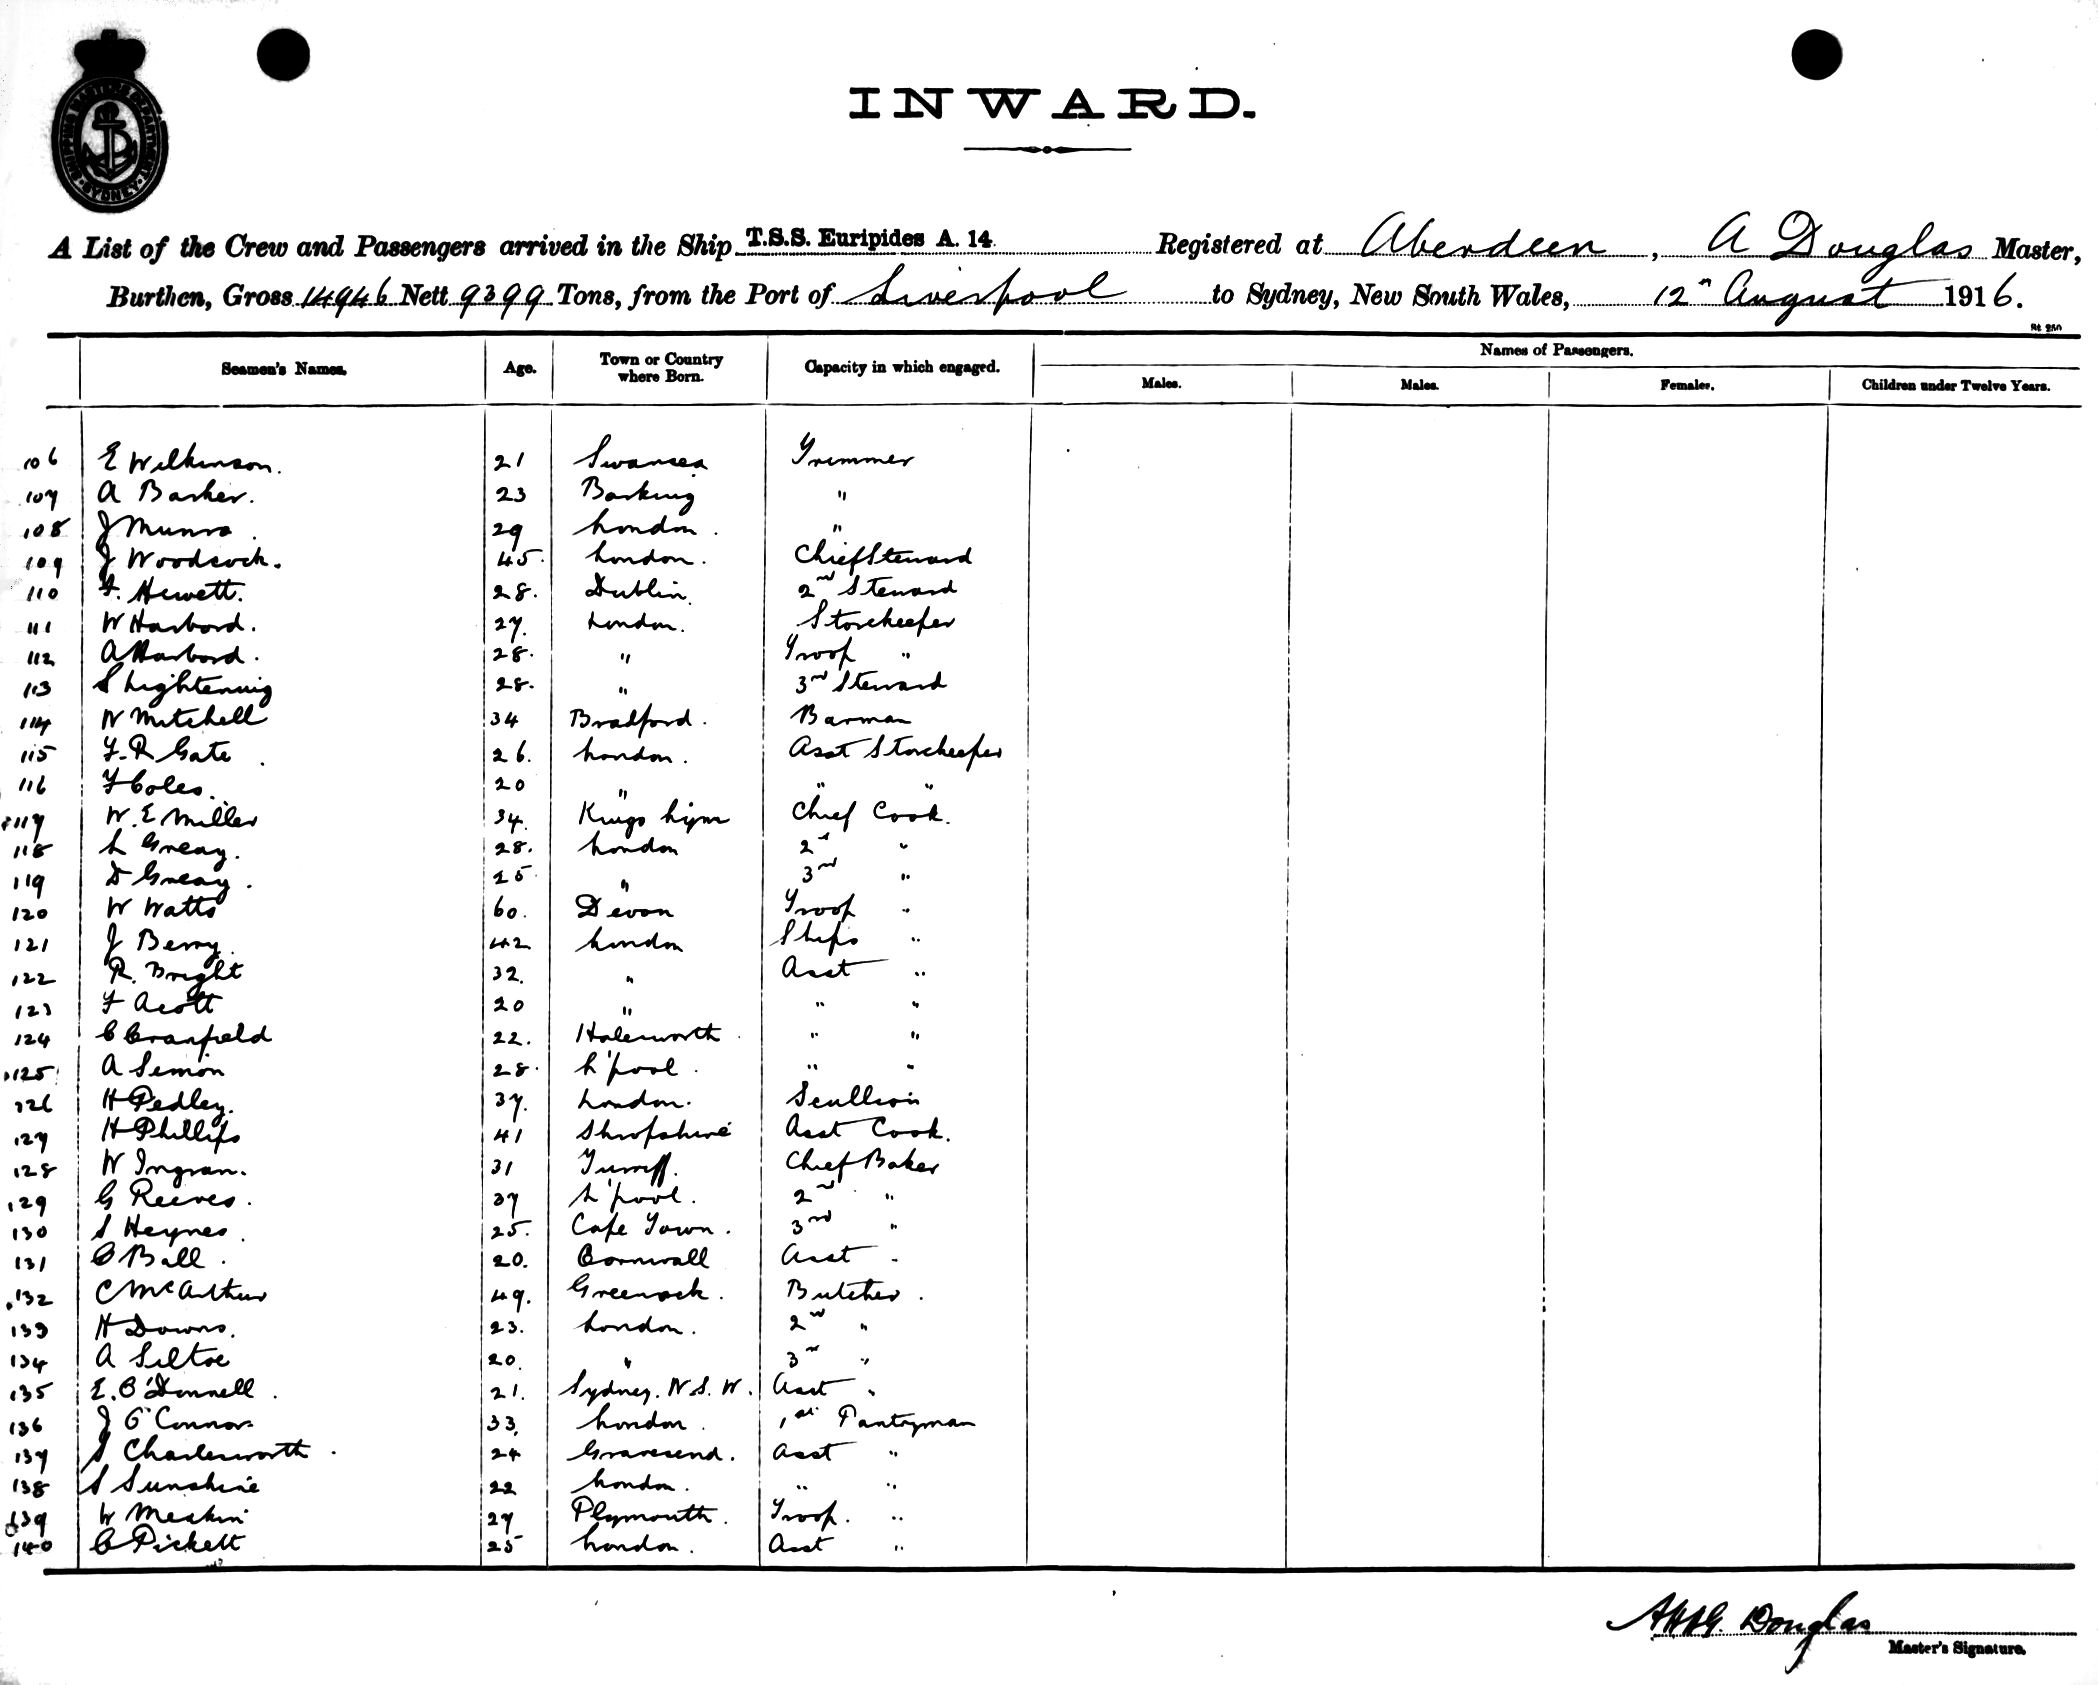 SHIPPING MASTER'S DEPARTMENT SYDNEY
INWARD.
A List of the Crew and Passengers arrived in the Ship T.S.S. Euripides A. 14 Registered at Aberdeen, A Douglas Master,
Burthen, Gross 14946 Nett 9399 Tons, from the Port of Liverpool to Sydney, New South Wales, 12th August 1916.
St 250
Seamen's Names. Age. Town or Country where Born. Capacity in which engaged. Names of Passengers.
Males. Males. Females. Children under Twelve Years.
106 E Wilkinson. 21 Swansea Trimmer
107 A Barker. 23 Barking "
108 J Munro. 29 London. "
109 J Woodcock. 45. London. Chief Steward
110 F. Hewett. 28. Dublin. 2nd Steward
111 W Harbord. 27. London. Storekeeper
112 A Harbord. 28. " Troop "
113 S Lightening 28. " 3rd Steward
114 W Mitchell 34 Bradford. Barman
115 F. R Gate. 26. London. Asst Storekeeper
116 F Coles. 20 " " "
117 W. E Miller 34. Kings Lynn Chief Cook.
118 L Greay. 28. London 2nd "
119 D Greay. 25 " 3rd "
120 W Watts 60. Devon Troop "
121 J Berry. 42 London Ships "
122 R. Bright 32. " Asst "
123 F Acott 20 " " "
124 C Cranfield 22. Halesworth " "
125 A Simon 28. L'pool. " "
126 H Pedley. 37. London. Scullion
127 H Phillips 41 Shropshire Asst Cook.
128 W Ingram. 31 Turriff. Chief Baker
129 G Reeves. 37 L'pool. 2nd "
130 S Heynes. 25. Cape Town. 3rd "
131 C Ball. 20. Cornwall Asst "
132 C McArthur 49. Greenock. Butcher.
133 H Downs. 23. London. 2nd "
134 A Siltoe 20. " 3rd "
135 E. O'Donnell. 21. Sydney. N.S.W. Asst "
136 J O'Connor 33. London. 1st Pantryman
137 S Charlesworth. 24 Gravesend. Asst "
138 S Sunshine 22 London. " "
139 W Meakin 27 Plymouth. Troop. "
140 C Pickett 25 London. Asst "
Douglas
Master's Signature.